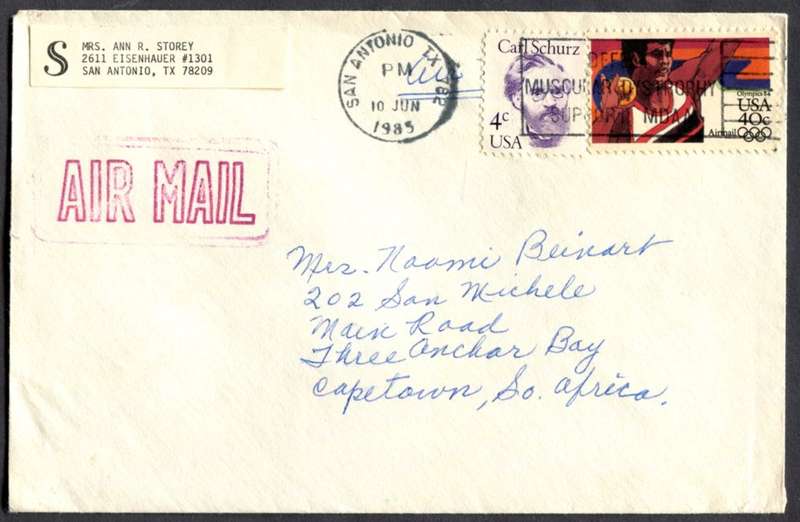 S
MRS. ANN R. STOREY
2611 EISENHAUER #1301
SAN ANTONIO, TX 78209
SAN ANTONIO TX 782
PM
10 JUN
1985
Carl Schurz
4c
USA
MUSCULAR DYSTROPHY
SUPPORT MDA
Olympics 84
USA
40c
Airmail
AIR MAIL
Mrs. Naomi Beinart
202 San Michele
Main Road
Three Anchor Bay
Capetown, So. Africa.